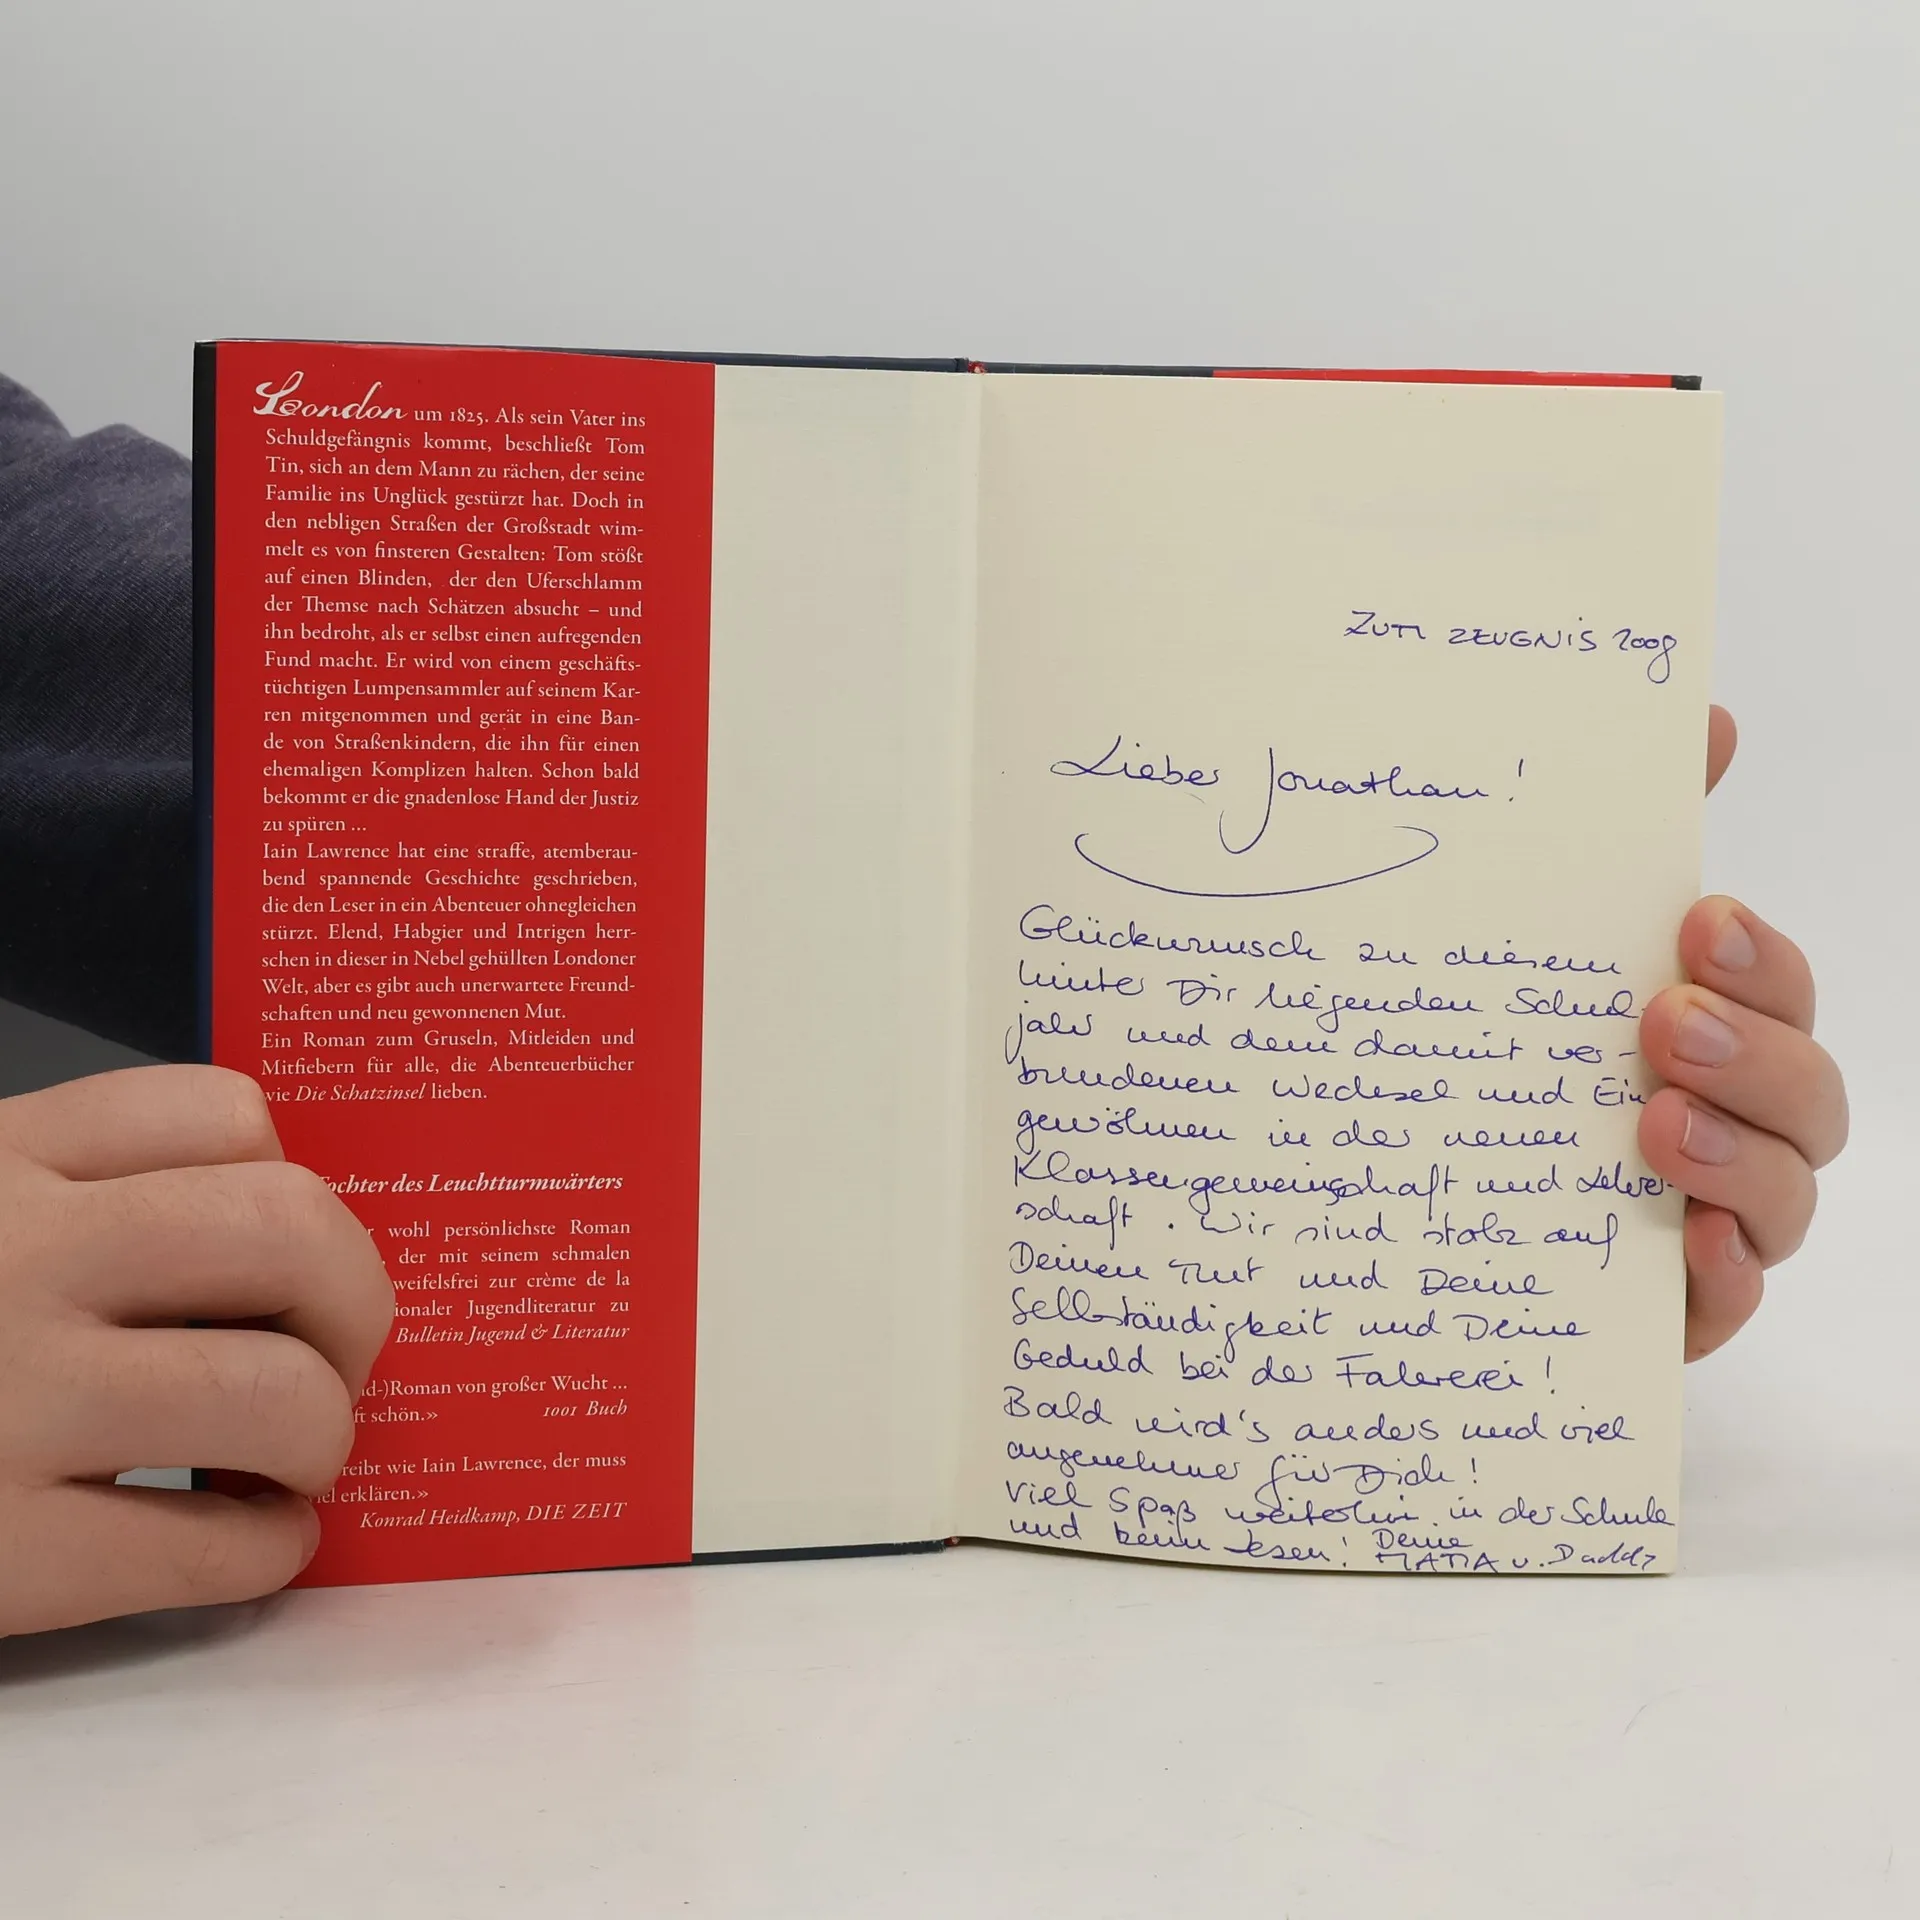 London um 1825. Als sein Vater ins
Schuldgefängnis kommt, beschließt Tom
Tin, sich an dem Mann zu rächen, der seine
Familie ins Unglück gestürzt hat. Doch in
den nebligen Straßen der Großstadt wim-
melt es von finsteren Gestalten: Tom stößt
auf einen Blinden, der den Uferschlamm
der Themse nach Schätzen absucht – und
ihn bedroht, als er selbst einen aufregenden
Fund macht. Er wird von einem geschäfts-
tüchtigen Lumpensammler auf seinem Kar-
ren mitgenommen und gerät in eine Ban-
de von Straßenkindern, die ihn für einen
ehemaligen Komplizen halten. Schon bald
bekommt er die gnadenlose Hand der Justiz
zu spüren ...
Iain Lawrence hat eine straffe, atemberau-
bend spannende Geschichte geschrieben,
die den Leser in ein Abenteuer ohnegleichen
stürzt. Elend, Habgier und Intrigen herr-
schen in dieser in Nebel gehüllten Londoner
Welt, aber es gibt auch unerwartete Freund-
schaften und neu gewonnenen Mut.
Ein Roman zum Gruseln, Mitleiden und
Mitfiebern für alle, die Abenteuerbücher
wie Die Schatzinsel lieben.
Tochter des Leuchtturmwärters
wohl persönlichste Roman
der mit seinem schmalen
weifelsfrei zur crème de la
ionaler Jugendliteratur zu
Bulletin Jugend & Literatur
nd-)Roman von großer Wucht ...
ft schön.» 1001 Buch
reibt wie Iain Lawrence, der muss
iel erklären.»
Konrad Heidkamp, DIE ZEIT
ZUM ZEUGNIS 2008
Lieber Jonathan!
Glückwunsch zu diesem
hinter Dir liegenden Schul-
jahr und dem damit ver-
bundenen Wechsel und Ein
gewöhnen in der neuen
Klassengemeinschaft und Lehrer-
schaft. Wir sind stolz auf
Deinen Mut und Deine
Selbständigkeit und Deine
Geduld bei der Fahrerei!
Bald wird's anders und viel
angenehmer für Dich!
Viel Spaß weiterhin in der Schule
und beim Lesen! Deine
MAMA u. Daddy